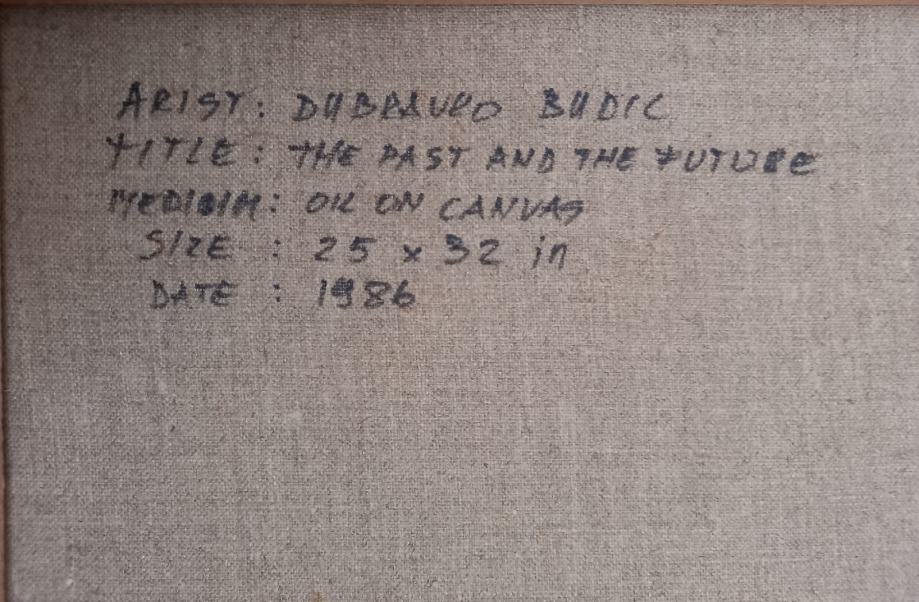 ARIST: DUBRAVKO BUDIC
TITLE: THE PAST AND THE FUTURE
MEDIUM: OIL ON CANVAS
SIZE : 25 x 32 in
DATE : 1986